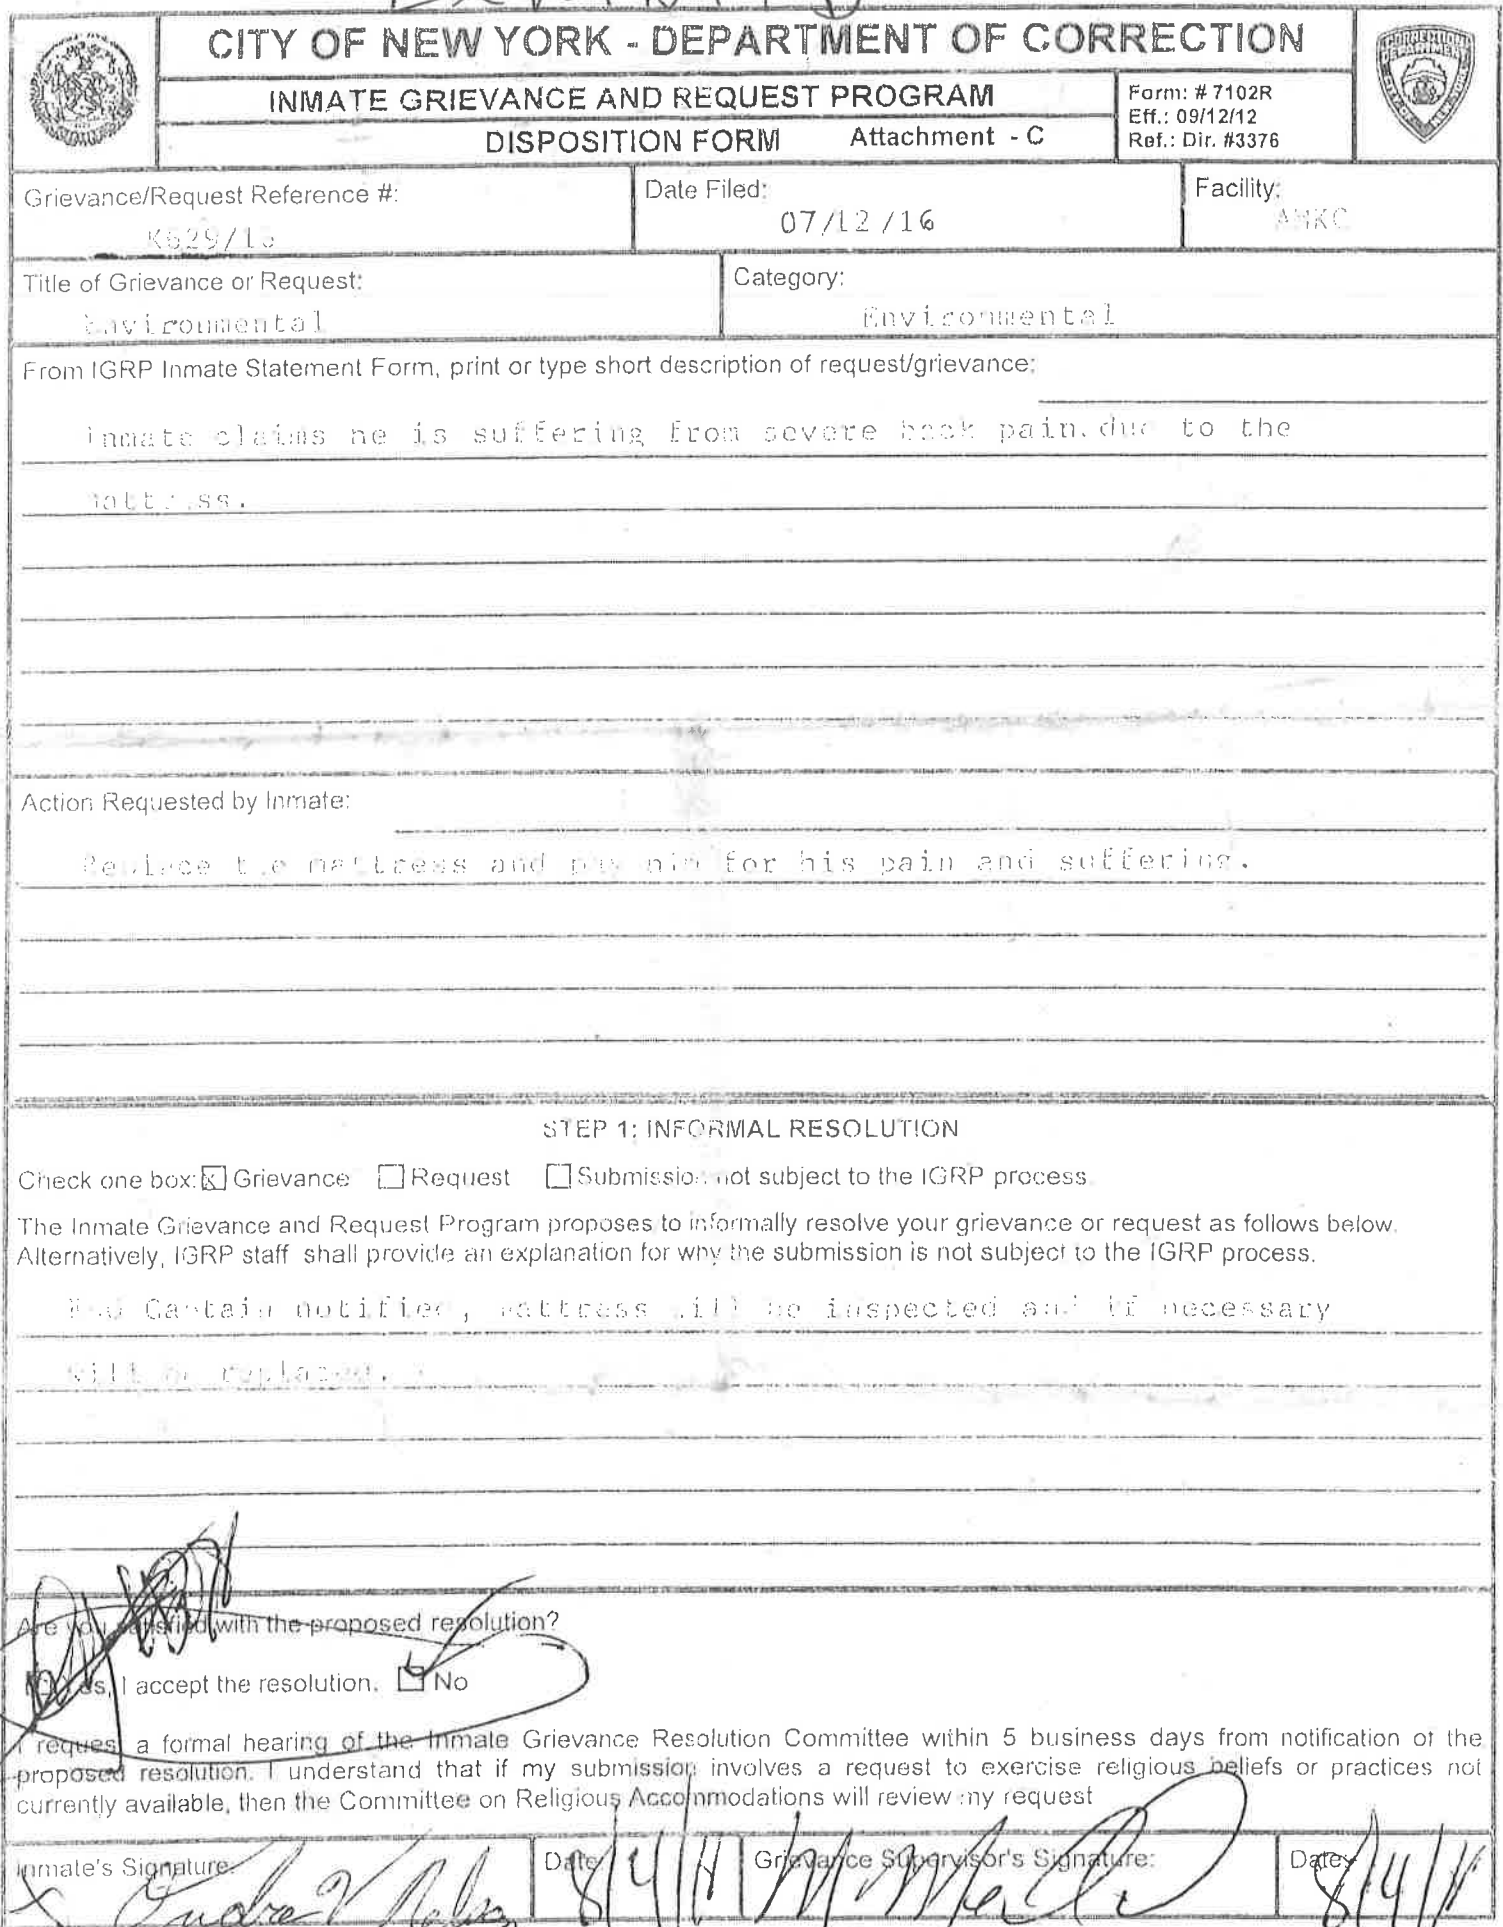 CITY OF NEW YORK - DEPARTMENT OF CORRECTION
INMATE GRIEVANCE AND REQUEST PROGRAM
DISPOSITION FORM Attachment - C
Form: # 7102R
Eff.: 09/12/12
Ref.: Dir. #3376
Grievance/Request Reference #:
Date Filed:
07/12/16
Facility:
AMKC
Title of Grievance or Request:
Environmental
Category:
Environmental
From IGRP Inmate Statement Form, print or type short description of request/grievance:
inmate claims he is suffering from severe back pain.due to the
mattress.
Action Requested by Inmate:
Replace the mattress and pay him for his pain and suffering.
STEP 1: INFORMAL RESOLUTION
Check one box: Grievance Request Submission not subject to the IGRP process.
The Inmate Grievance and Request Program proposes to informally resolve your grievance or request as follows below.
Alternatively, IGRP staff shall provide an explanation for why the submission is not subject to the IGRP process.
Captain notified, mattress will be inspected and if necessary
will be replaced.
Are you satisfied with the proposed resolution?
Yes, I accept the resolution. No
I request a formal hearing of the Inmate Grievance Resolution Committee within 5 business days from notification of the
proposed resolution. I understand that if my submission involves a request to exercise religious beliefs or practices not
currently available, then the Committee on Religious Accommodations will review my request
Inmate's Signature:
Date:
Grievance Supervisor's Signature:
Date: